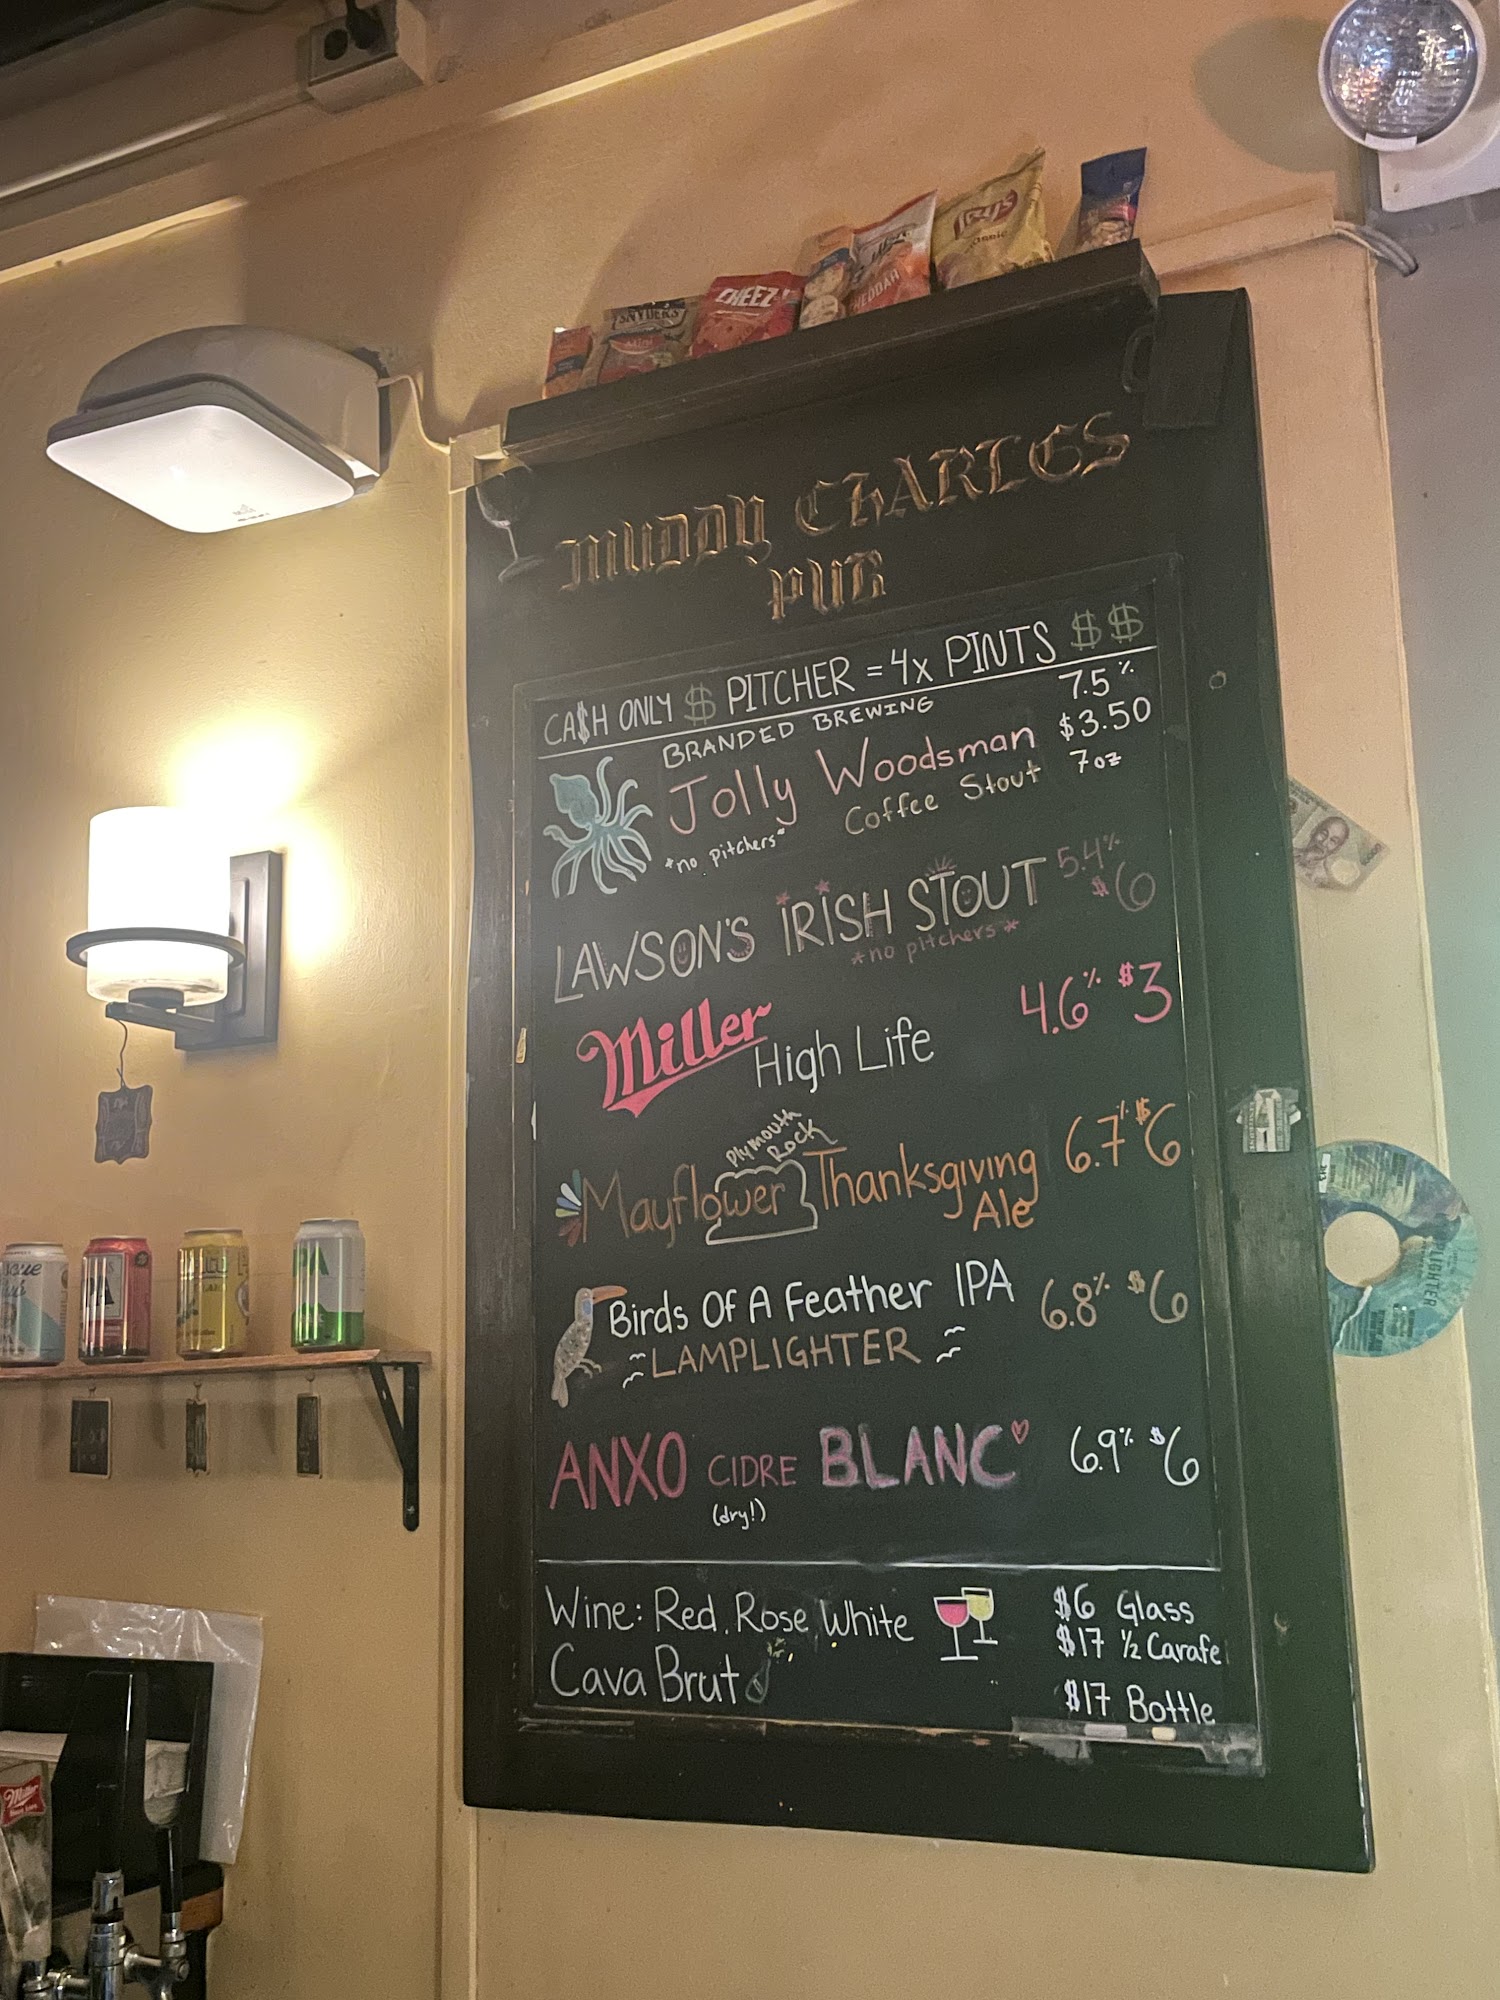 SNYDER'S
Mini
CHEEZ
CHEDDAR
Lay's
Classic
MUDDY CHARLES
PUB
CA$H ONLY $ PITCHER = 4x PINTS $$
BRANDED BREWING 7.5%
Jolly Woodsman $3.50
*no pitchers* Coffee Stout 7oz
LAWSON'S IRISH STOUT 5.4%
$6
*no pitchers*
Miller 4.6% $3
High Life
Plymouth
Rock
Mayflower Thanksgiving 6.7% $6
Ale
Birds Of A Feather IPA 6.8% $6
LAMPLIGHTER
ANXO CIDRE BLANC 6.9% $6
(dry!)
Wine: Red, Rose, White $6 Glass
$17 ½ Carafe
Cava Brut $17 Bottle
Miller